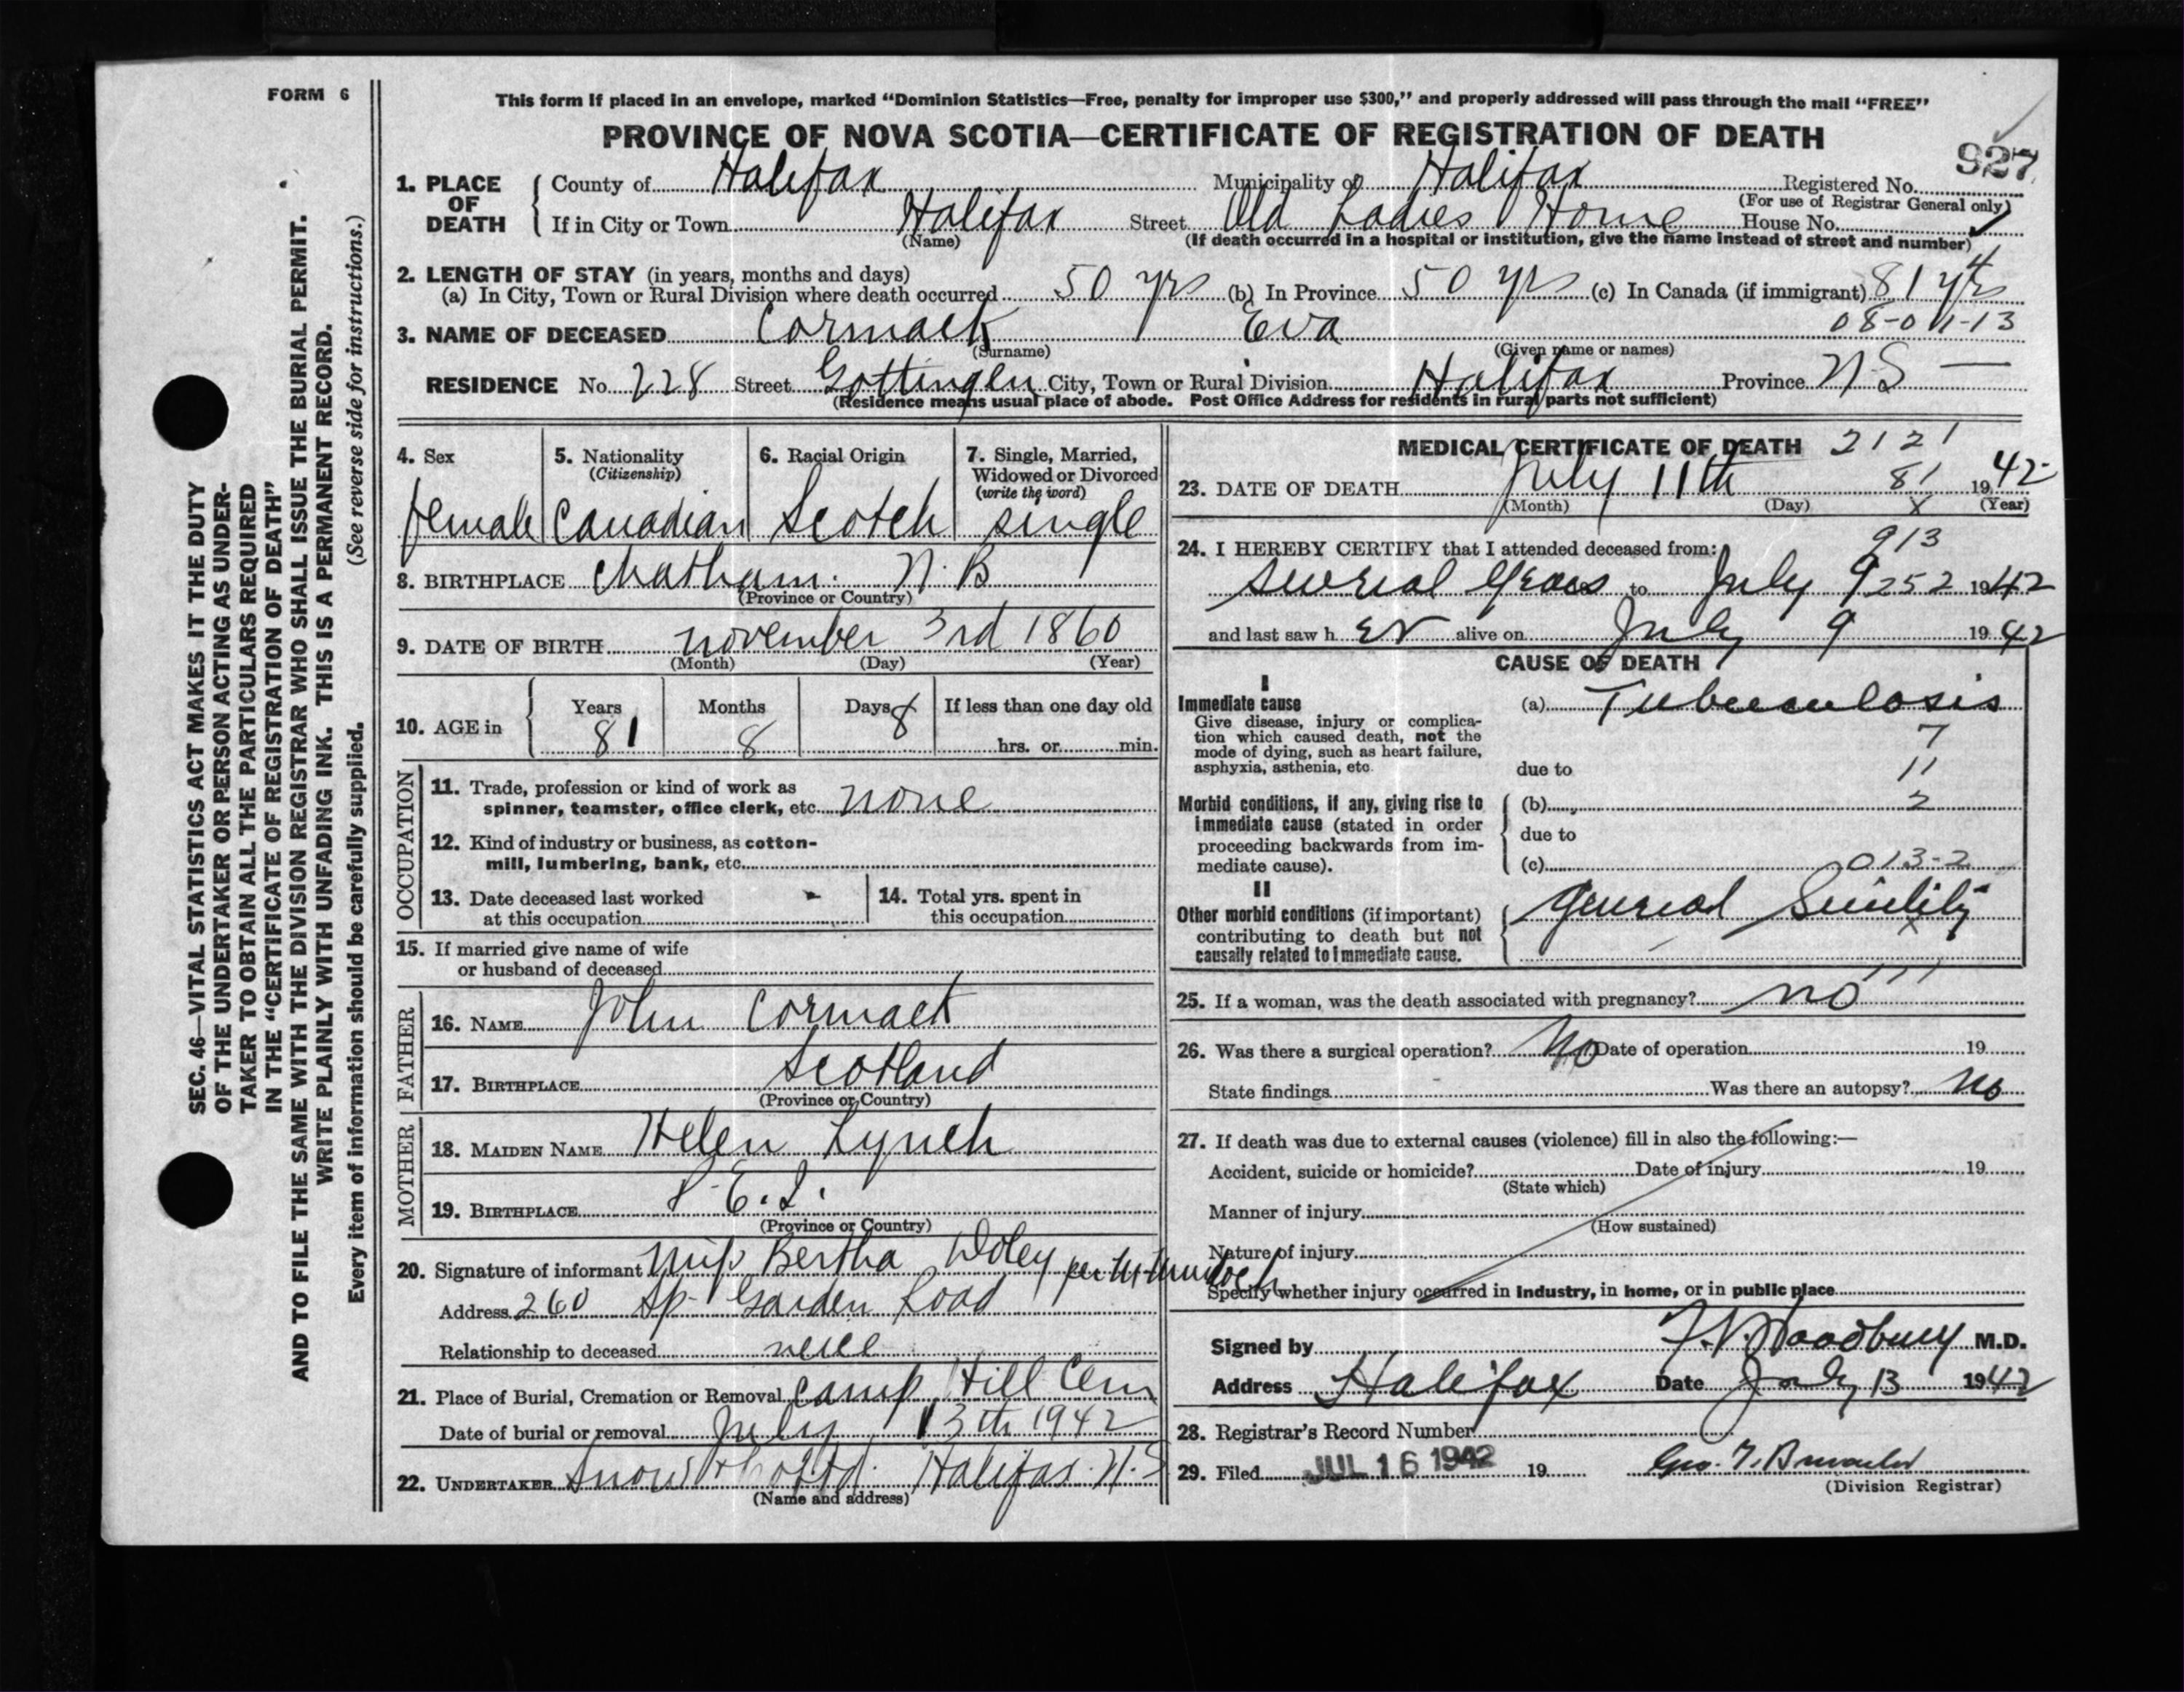 FORM 6
This form if placed in an envelope, marked “Dominion Statistics—Free, penalty for improper use $300,” and properly addressed will pass through the mail “FREE”
PROVINCE OF NOVA SCOTIA—CERTIFICATE OF REGISTRATION OF DEATH
927
1. PLACE OF DEATH
County of Halifax Municipality of Halifax Registered No.
(For use of Registrar General only)
If in City or Town Halifax Street Old Ladies Home House No.
(Name) (If death occurred in a hospital or institution, give the name instead of street and number)
2. LENGTH OF STAY (in years, months and days)
(a) In City, Town or Rural Division where death occurred 50 yrs (b) In Province 50 yrs (c) In Canada (if immigrant) 81 yrs
3. NAME OF DECEASED Cormack Eva 08-011-13
(Surname) (Given name or names)
RESIDENCE No. 228 Street Gottingen City, Town or Rural Division Halifax Province N.S —
(Residence means usual place of abode. Post Office Address for residents in rural parts not sufficient)
4. Sex
female
5. Nationality
(Citizenship)
Canadian
6. Racial Origin
Scotch
7. Single, Married,
Widowed or Divorced
(write the word)
single
8. BIRTHPLACE Chatham. N. B
(Province or Country)
9. DATE OF BIRTH november 3rd 1860
(Month) (Day) (Year)
10. AGE in
Years Months Days If less than one day old
81 8 8 hrs. or min.
OCCUPATION
11. Trade, profession or kind of work as
spinner, teamster, office clerk, etc. none
12. Kind of industry or business, as cotton-
mill, lumbering, bank, etc.
13. Date deceased last worked
at this occupation
14. Total yrs. spent in
this occupation
15. If married give name of wife
or husband of deceased
FATHER
16. NAME John Cormack
17. BIRTHPLACE Scotland
(Province or Country)
MOTHER
18. MAIDEN NAME Helen Lynch
19. BIRTHPLACE P.E.I.
(Province or Country)
20. Signature of informant Miss Bertha Doley per
Address 260 Sp. Garden Road
Relationship to deceased neice
21. Place of Burial, Cremation or Removal Camp Hill Cem
Date of burial or removal July 13th 1942
22. UNDERTAKER Snow & Co Ltd. Halifax. N.S
(Name and address)
MEDICAL CERTIFICATE OF DEATH 2121
23. DATE OF DEATH July 11th 81 1942
(Month) (Day) x (Year)
24. I HEREBY CERTIFY that I attended deceased from: 913
several years to July 9 252 1942
and last saw her alive on July 9 1942
CAUSE OF DEATH
I
Immediate cause
Give disease, injury or complica-
tion which caused death, not the
mode of dying, such as heart failure,
asphyxia, asthenia, etc.
(a) Tuberculosis
7
due to 11
Morbid conditions, if any, giving rise to
immediate cause (stated in order
proceeding backwards from im-
mediate cause).
(b) 2
due to
(c) 013-2
II
Other morbid conditions (if important)
contributing to death but not
causally related to immediate cause.
General Senility
x
25. If a woman, was the death associated with pregnancy? no
26. Was there a surgical operation? No Date of operation 19
State findings Was there an autopsy? No
27. If death was due to external causes (violence) fill in also the following:—
Accident, suicide or homicide? Date of injury 19
(State which)
Manner of injury
(How sustained)
Nature of injury
Specify whether injury occurred in industry, in home, or in public place
Signed by F.V. Woodbury M.D.
Address Halifax Date July 13 1942
28. Registrar's Record Number
29. Filed JUL 16 1942 19
(Division Registrar)
SEC. 46—VITAL STATISTICS ACT MAKES IT THE DUTY
OF THE UNDERTAKER OR PERSON ACTING AS UNDER-
TAKER TO OBTAIN ALL THE PARTICULARS REQUIRED
IN THE “CERTIFICATE OF REGISTRATION OF DEATH”
AND TO FILE THE SAME WITH THE DIVISION REGISTRAR WHO SHALL ISSUE THE BURIAL PERMIT.
WRITE PLAINLY WITH UNFADING INK. THIS IS A PERMANENT RECORD.
Every item of information should be carefully supplied. (See reverse side for instructions.)